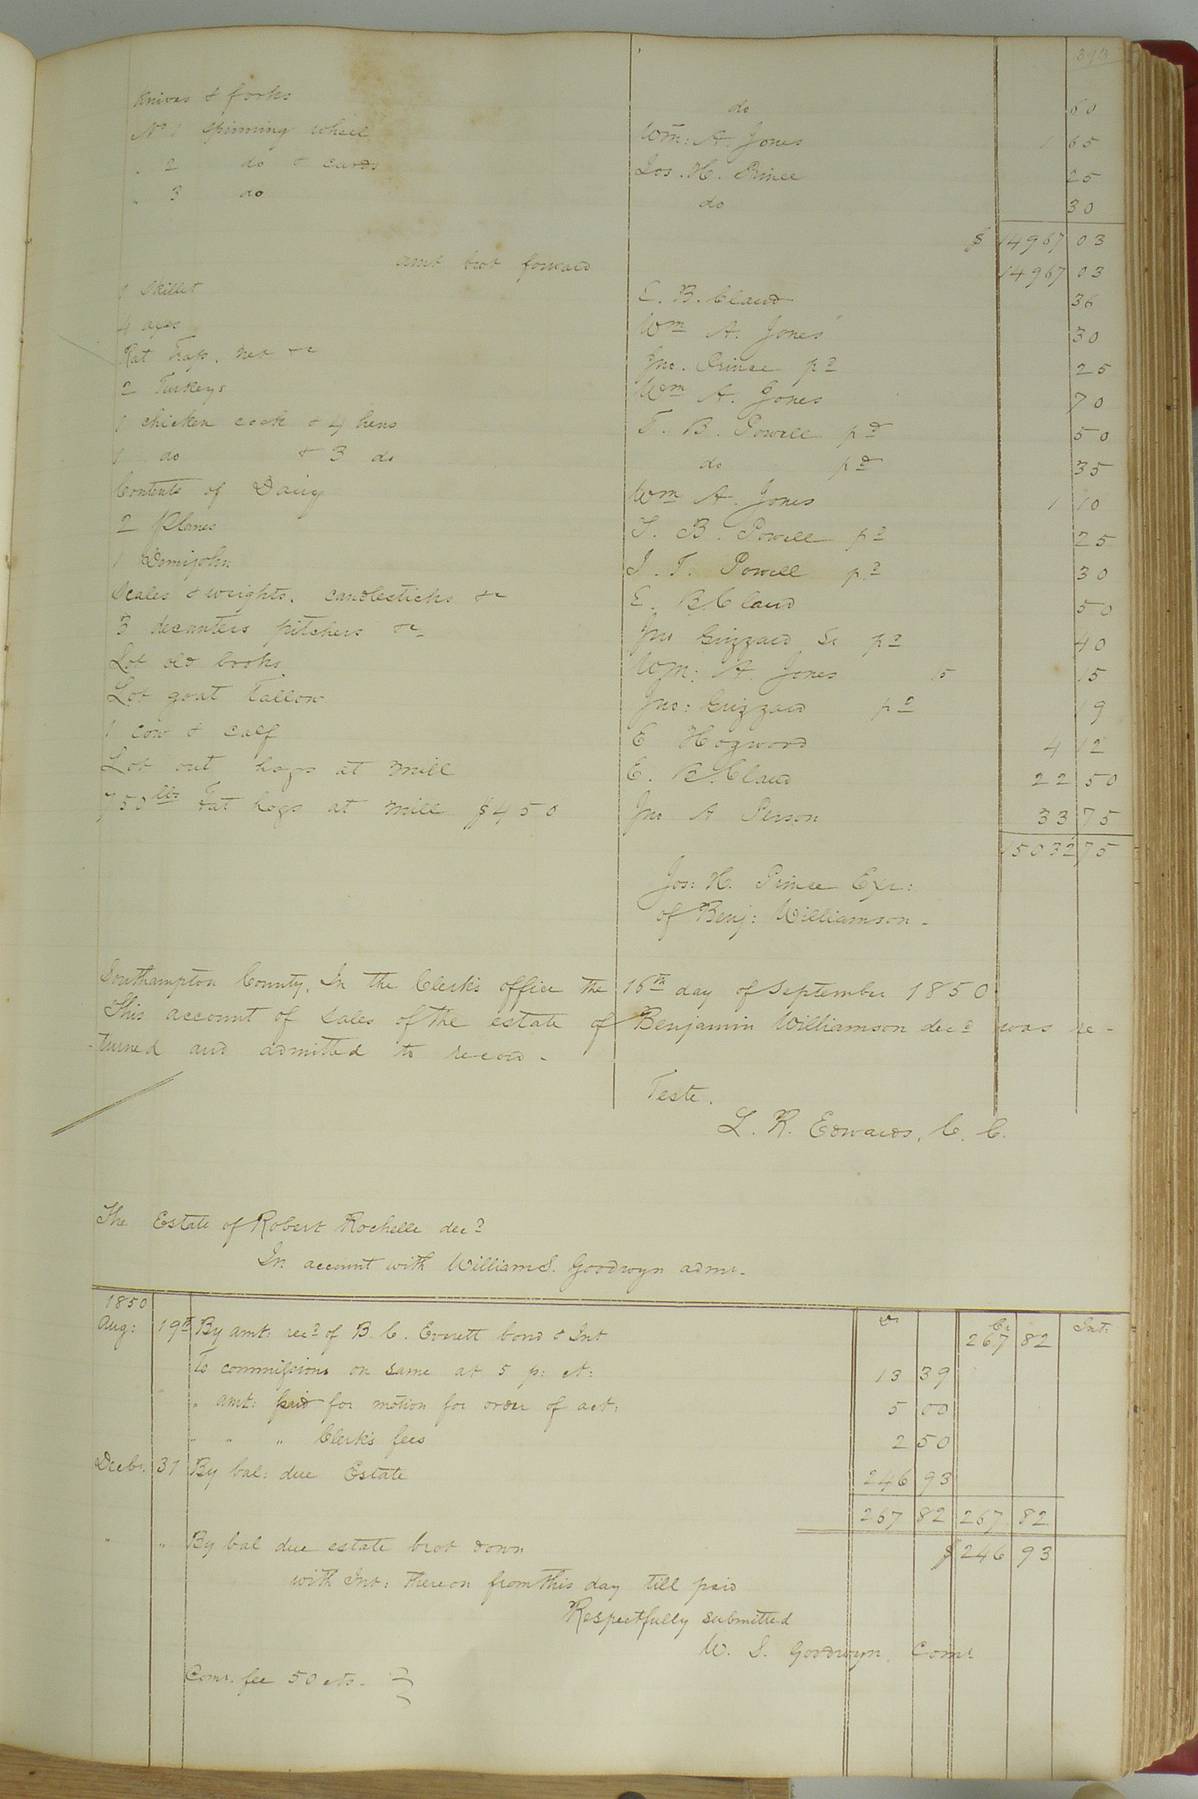 Knives & forks do 60
No 1 Spinning wheel Wm: A. Jones 1 65
" 2 do & cards Jos. H. Prince 25
" 3 do do 30
$ 14967 03
amt brot forward 14967 03
1 Skillet E. B. Claud 36
4 axes Wm A. Jones 30
Rat Trap, net &c Jno. Prince pd 25
2 Turkeys Wm A. Jones 70
1 chicken cock & 4 hens T. B. Powell pd 50
1 do & 3 do do pd 35
Contents of Dairy Wm A. Jones 1 10
2 Planes T. B. Powell pd 25
1 Demijohn J. T. Powell pd 30
Scales & weights, candlesticks &c E. B. Claud 50
3 decanters pitchers &c Jno Grizzard Sr pd 40
Lot old books Wm: A. Jones 15 15
Lot goat Tallow Jno: Grizzard pd 19
1 cow & calf E Hogwood 4 12
Lot out hogs at mill E. B. Claud 22 50
750 lbs Fat hogs at mill $4 50 Jno A Person 33 75
15032 75
Jos: H. Prince Exr:
of Benj: Williamson.
Southampton County, In the Clerk's office the 16th day of September 1850
This account of sales of the estate of Benjamin Williamson decd was re-
turned and admitted to record.
Teste.
L. R. Edwards, C. C.
The Estate of Robert Rochelle decd
In account with William S. Goodwyn admr.
1850 Dr Cr Int:
Aug: 19th By amt: recd of B. C. Everett bond & Int 267 82
To commissions on same at 5 p: ct: 13 39
" amt: paid for motion for order of act: 5 00
" " " Clerk's fees 2 50
Decbr. 31 By bal: due Estate 246 93
267 82 267 82
" " By bal due estate brot down $ 246 93
with Int: thereon from this day till paid
Respectfully submitted
W. S. Goodwyn, Comr
Comr. fee 50 cts.